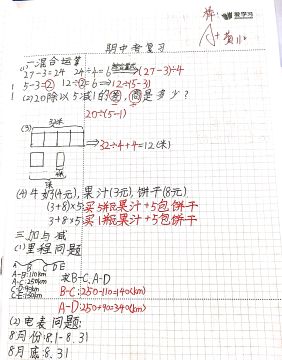 爱学习
期中考复习
一混合运算
(1) 27-3=24 24÷4=6 ⟹ (27-3)÷4
5-3=② 12÷②=6 ⟹ 12÷(5-3)
(2) 20除以5减1的差,商是多少?
20÷(5-1)
(3) 32米
⟹ 32÷4+4=12(米)
(4) 牛奶(4元),果汁(3元),饼干(8元)
(3+8)×5 买5瓶果汁+5包饼干
3+8×5 买1瓶果汁+5包饼干
三、加与减
(1) 里程问题
A B C D E
A-B:110km
A-C:250km
求B-C,A-D
B-C:250-110=140(km)
A-D:250+90=340(km)
(2) 电表问题:
8月份:8.1-8.31
8月底:8.31